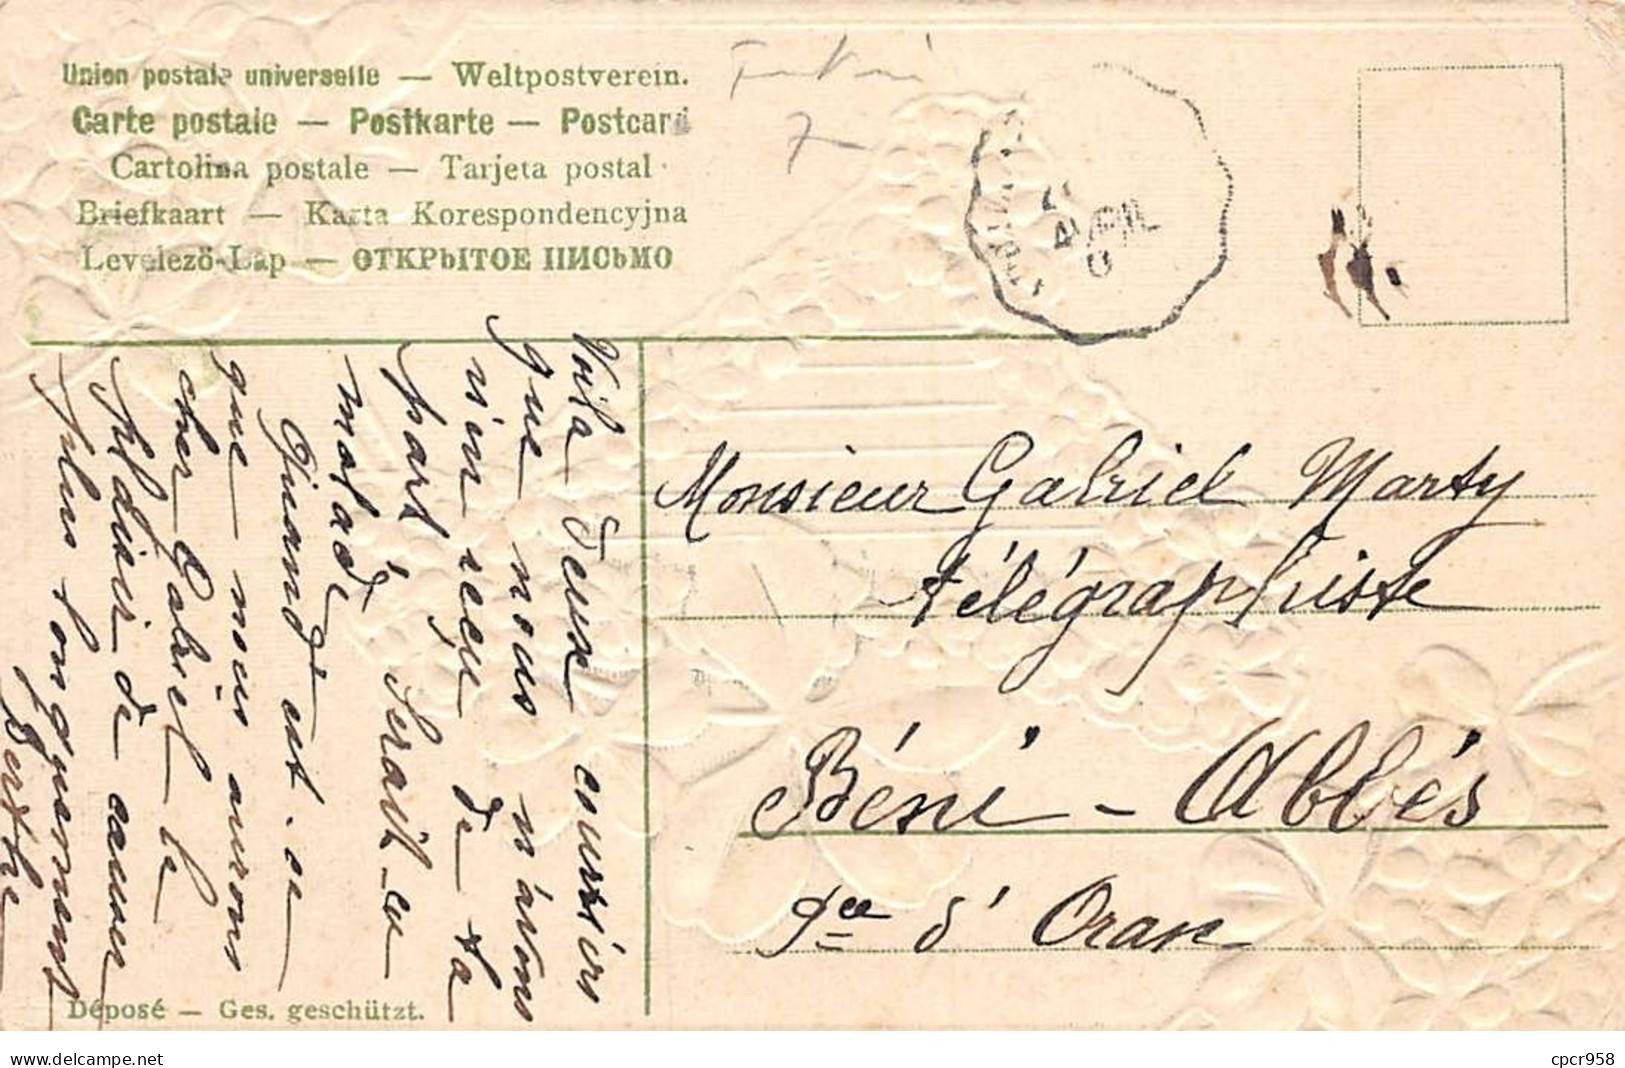 Union postale universelle — Weltpostverein.
Carte postale — Postkarte — Postcard
Cartolina postale — Tarjeta postal
Briefkaart — Karta Korespondencyjna
Levelező-Lap — ОТКРЫТОЕ ПИСЬМО
7
AVRIL
Voila deux courriers
que nous n'avons
rien reçu de ta
part. Serait-ce
malade
Quand est-ce
que nous aurons
cher Gabriel le
plaisir de causer
plus longuement
Berthe
Monsieur Gabriel Marty
télégraphiste
Béni-Abbés
Pce d'Oran
Déposé — Ges. geschützt.
cpcr958